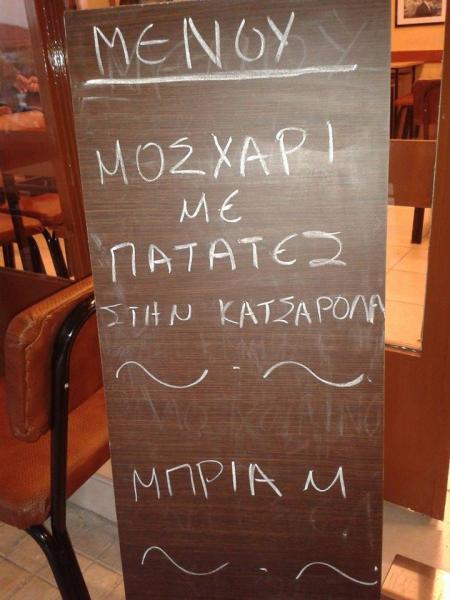 ΜΕΝΟΥ
ΜΟΣΧΑΡΙ
ΜΕ
ΠΑΤΑΤΕΣ
ΣΤΗΝ ΚΑΤΣΑΡΟΛΑ
ΜΠΡΙΑΜ